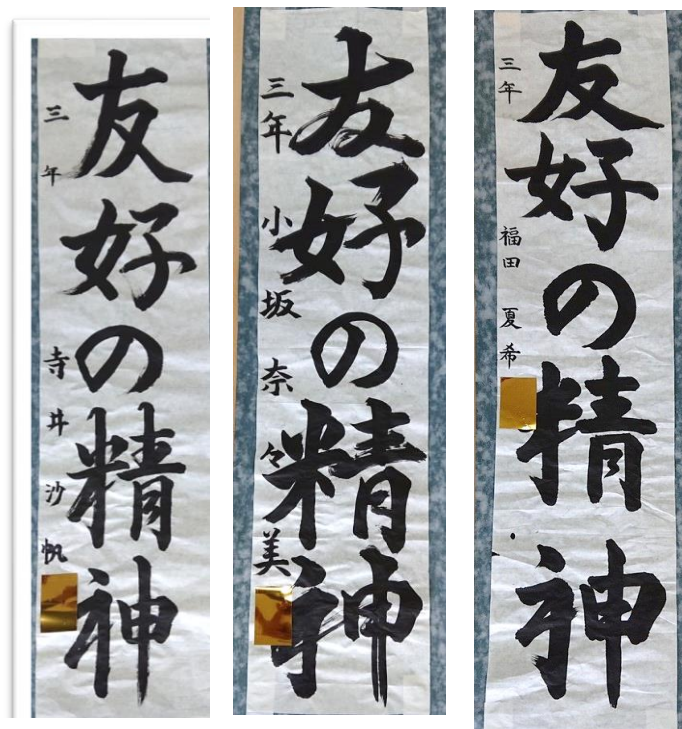 友好の精神
三年 寺井沙帆
友好の精神
三年 小坂奈々美
友好の精神
三年 福田夏希